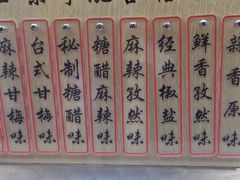 麻辣甘梅味
台式甘梅味
秘制糖醋味
糖醋麻辣味
麻辣孜然味
经典椒盐味
鲜香孜然味
香原味